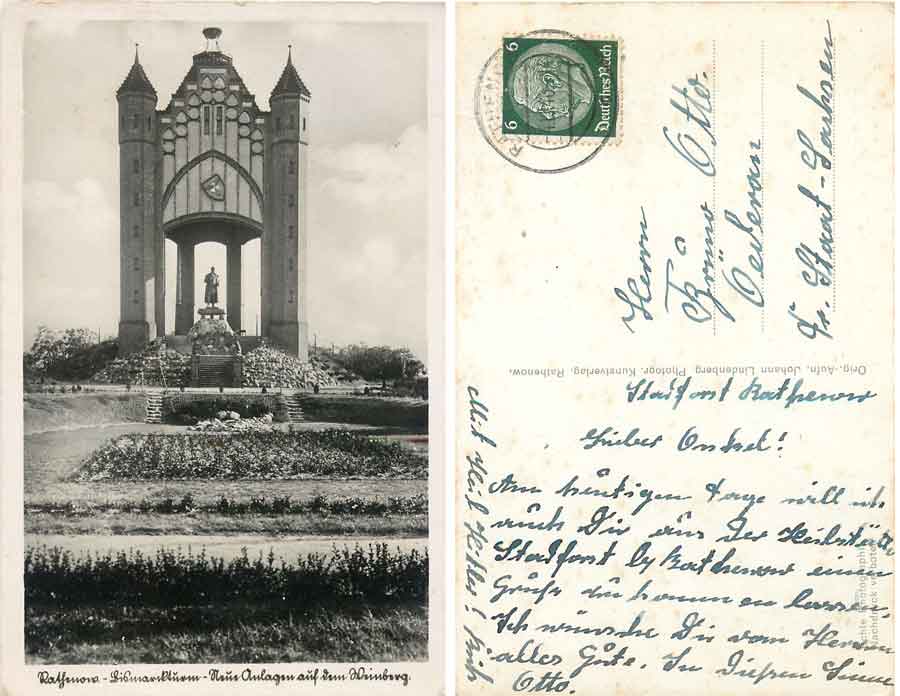 Rathenow - Bismarckturm - Neue Anlagen auf dem Weinberg.
6 6
Deutsches Reich
Herrn
Brüno Otto.
Oederan
Fr. Staat-Sachsen
Orig.-Aufn. Johann Lindenberg Photogr. Kunstverlag, Rathenow.
Stadforst Rathenow
Lieber Onkel!
Am heütigen Tage will ich
auch Dir aüs der Heilstätte
Stadforst b/Rathenow einen
Grüß zukommen lassen.
Ich wünsche Dir vom Herren
alles Güte. In diesen Sinne
Otto.
Mit Heil Hitler!
Echte Photographie
Nachdruck verboten